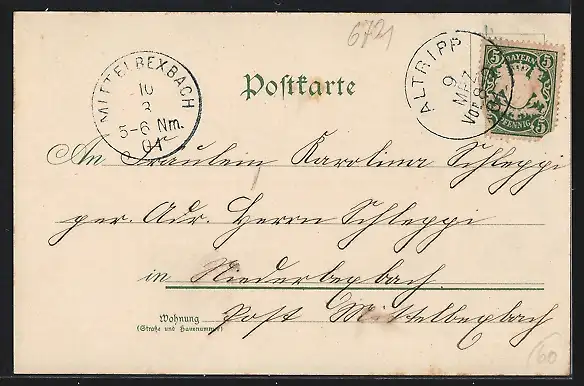 6721
MITTELBEXBACH
10
3
5-6 Nm.
01
Postkarte
ALTRIPP
9
MRZ
Vor.
BAYERN
5 5
PFENNIG
5
An Fräulein Karolina Schleppi
per. Adr. Herrn Schleppi
in Niederbexbach.
Wohnung
(Straße und Hausnummer)
Post Mittelbexbach
60